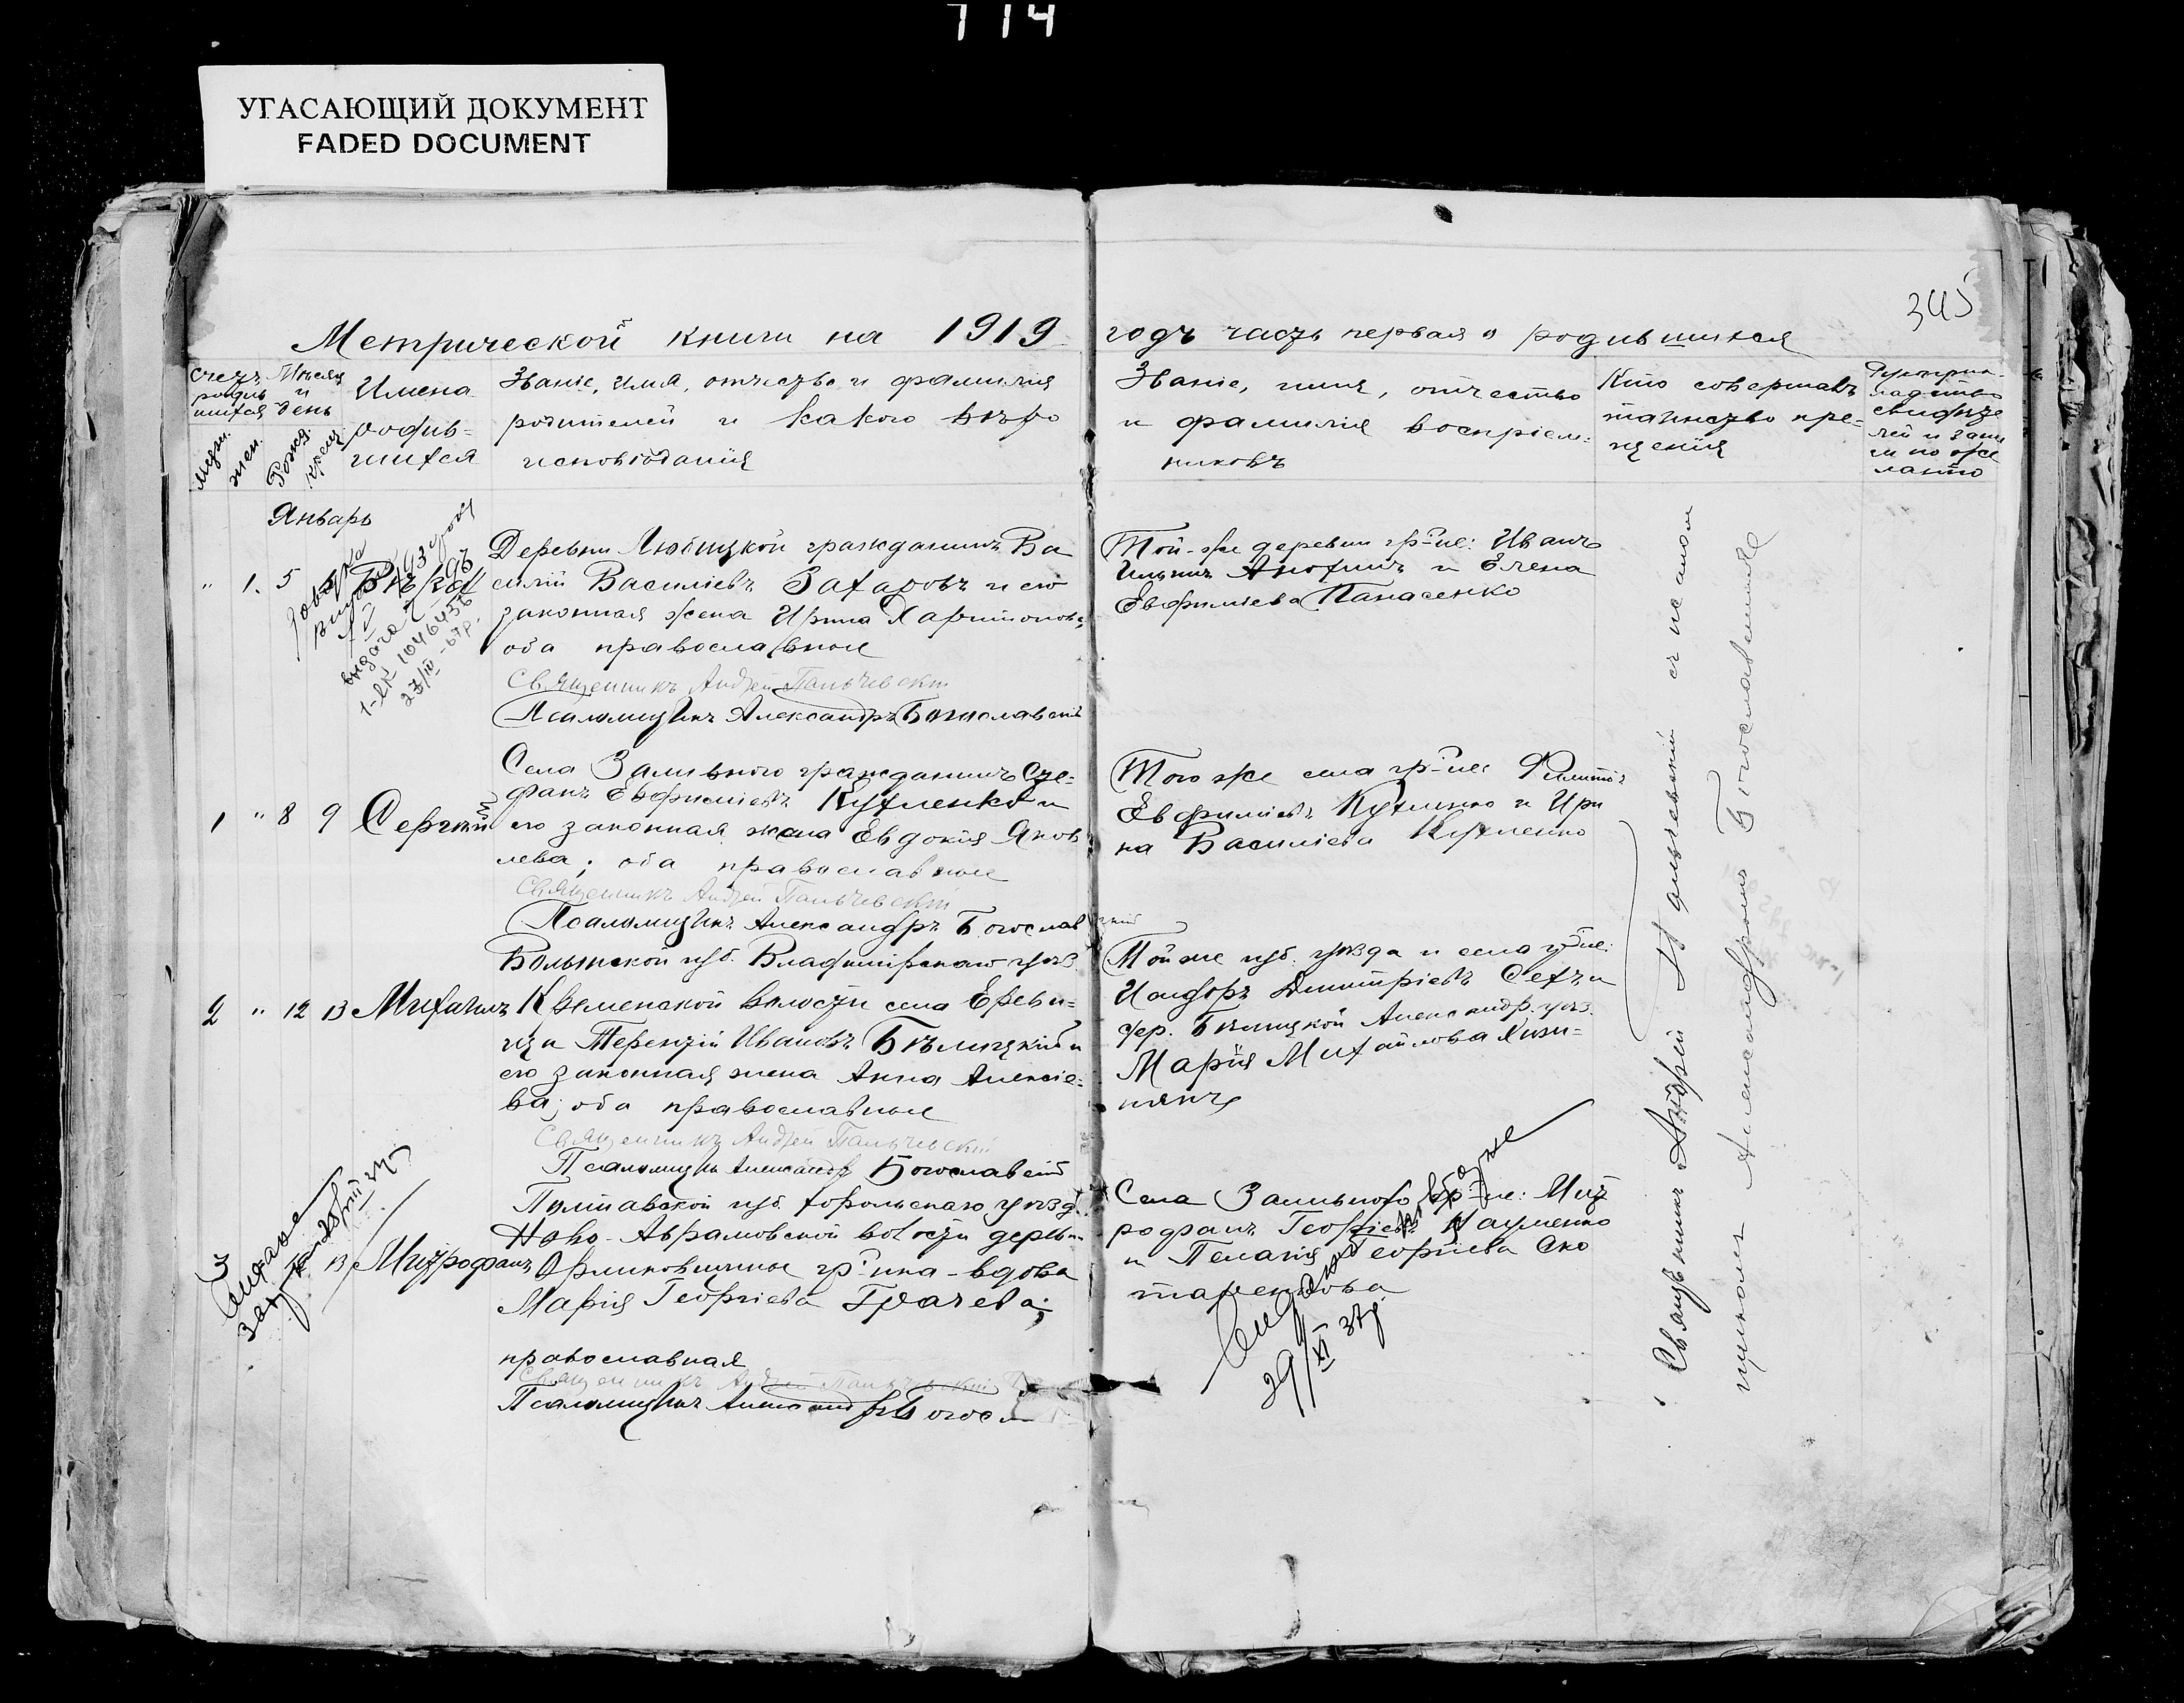 714
УГАСАЮЩИЙ ДОКУМЕНТ
FADED DOCUMENT
345
Метрической книги на 1919
годъ часть первая о родившихся
Счетъ родив шихся
Мѣсяц и день
Имена родив-
шихся
Званіе, имя, отчество и фамилия
родителей и какого вѣро
исповѣданія
Званіе, имя, отчество
и фамилия воспріем-
никовъ
Кто совершалъ
таинство кре-
щенія
Рукоприк-
ладство
свидѣте
лей
по же
ланію
Муж.
жен.
Рожд.
крещ.
Январь
" 1. 5
Деревни Любицкой гражданинъ Ва
силій Василіевъ Захаровъ и его
законная жена Ирина Харитонова
оба православные
Священникъ Андрей Пальчевскій
Псаломщикъ Александръ Богославскій
Той-же деревни гр-не: Иванъ
Ильинъ и Елена
Евфиміева Панасенко
выдача
23/IV-67г.
1 " 8 9 Сергій
Села Заливного гражданинъ Сте-
фанъ Евфиміевъ Кухленко и
его законная жена Евдокія Яков
лева; оба православные
Священникъ Андрей Пальчевскій
Псаломщикъ Александръ Богослав
скій
Того же села гр-не Филиппъ
Евфиміевъ Кухленко и Ири
на Василіева Кухленко
2 " 12 13 Михаилъ
Волынской губ. Владимірскаго уѣз.
волости села
Терентій Ивановъ Бѣлицкій и
его законная жена Анна Алексіе-
ва; оба православные
Священникъ Андрей Пальчевскій
Псаломщикъ Александръ Богославскій
Той же губ. уѣзда и села гр-не:
Исидоръ Димитріевъ и
дер. Александр. уѣз.
Марія Михайлова
3 13 Митрофанъ
Полтавской губ. Хорольскаго уѣзд.
Ново-Аврамовской волости деревни
гр-нка-вдова
Марія Георгіева Грачева;
православная
Священникъ Андрей Пальчевскій
Псаломщикъ Александръ Богосл
Села Заливного гр-не: Мит
рофанъ Георгіевъ Науменко
и Пелагія Георгіева Ско
29/XI 37г.
Священникъ Андрей Пальчевскій съ псалом
щикомъ Александромъ Богославскимъ